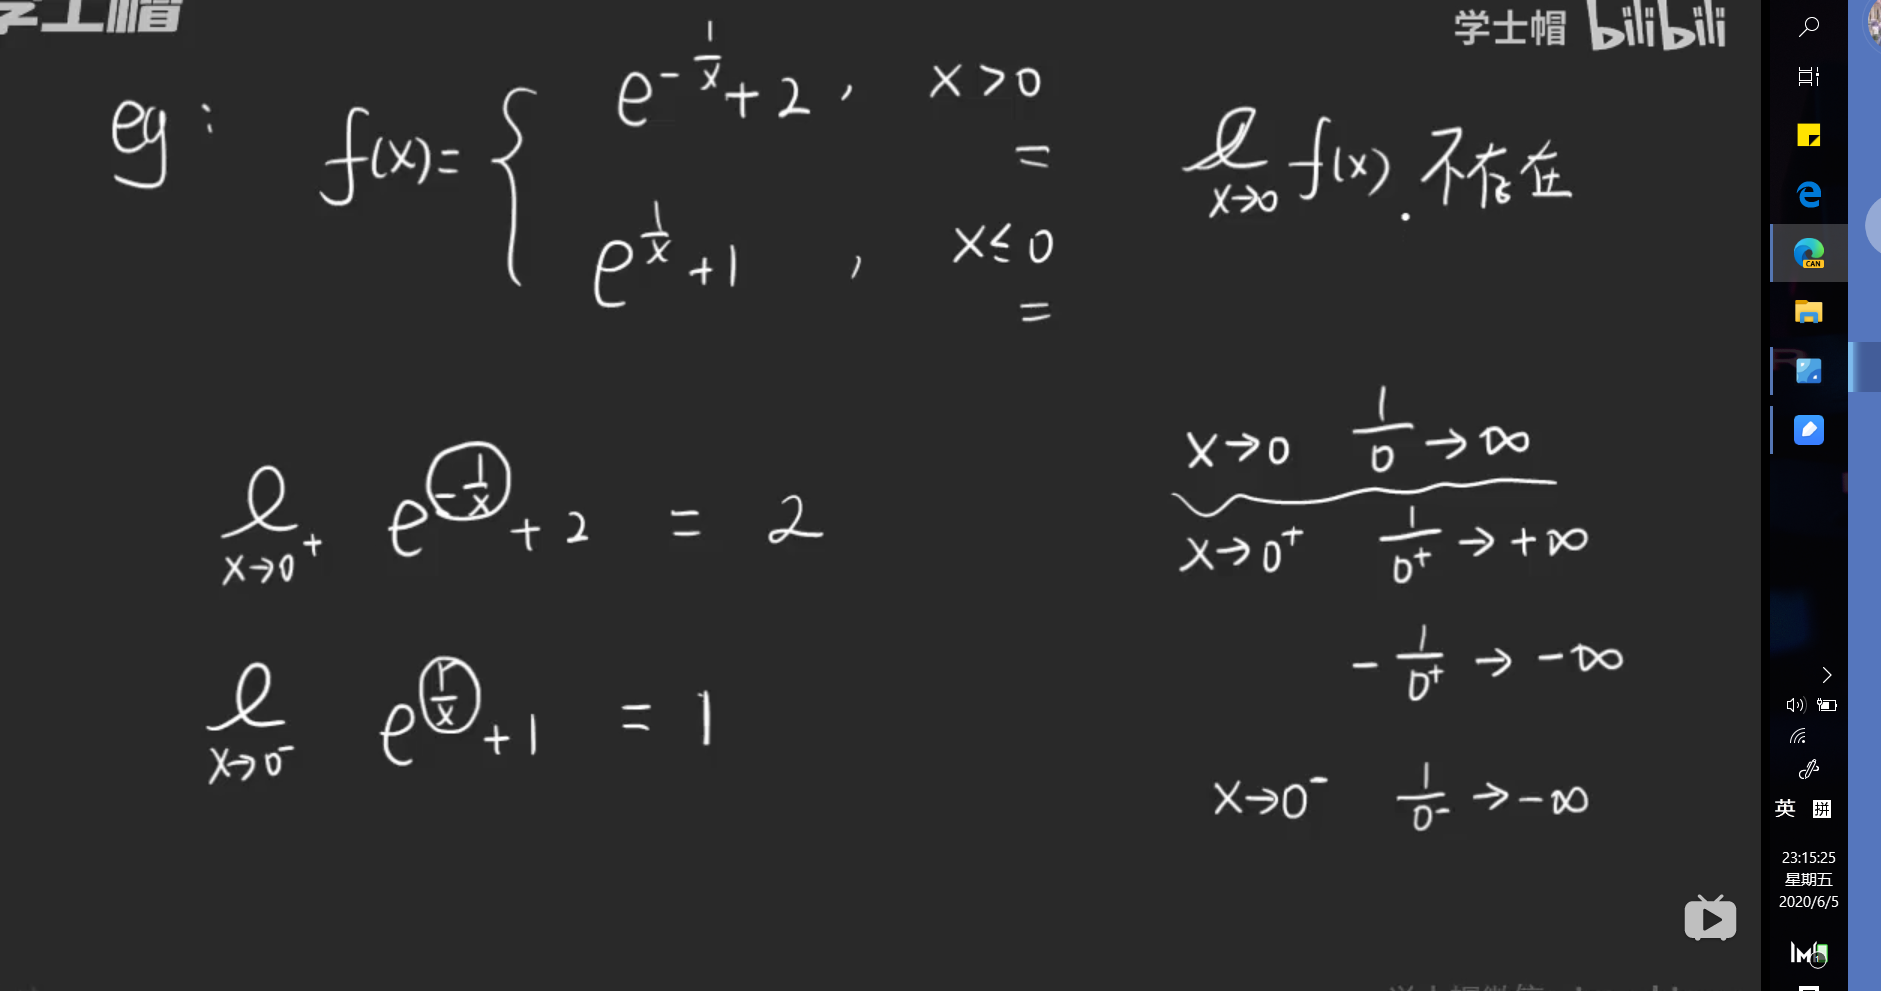 学士帽
学士帽 bilibili
eg: f(x)= { e^{-\frac{1}{x}}+2, x>0
=
e^{\frac{1}{x}}+1, x≤0
=
l_{x→0} f(x). 不存在
l_{x→0^+} e^{-\frac{1}{x}}+2 = 2
l_{x→0^-} e^{\frac{1}{x}}+1 = 1
x→0 \frac{1}{0}→∞
x→0^+ \frac{1}{0^+}→+∞
-\frac{1}{0^+}→-∞
x→0^- \frac{1}{0^-}→-∞
CAN
英 拼
23:15:25
星期五
2020/6/5